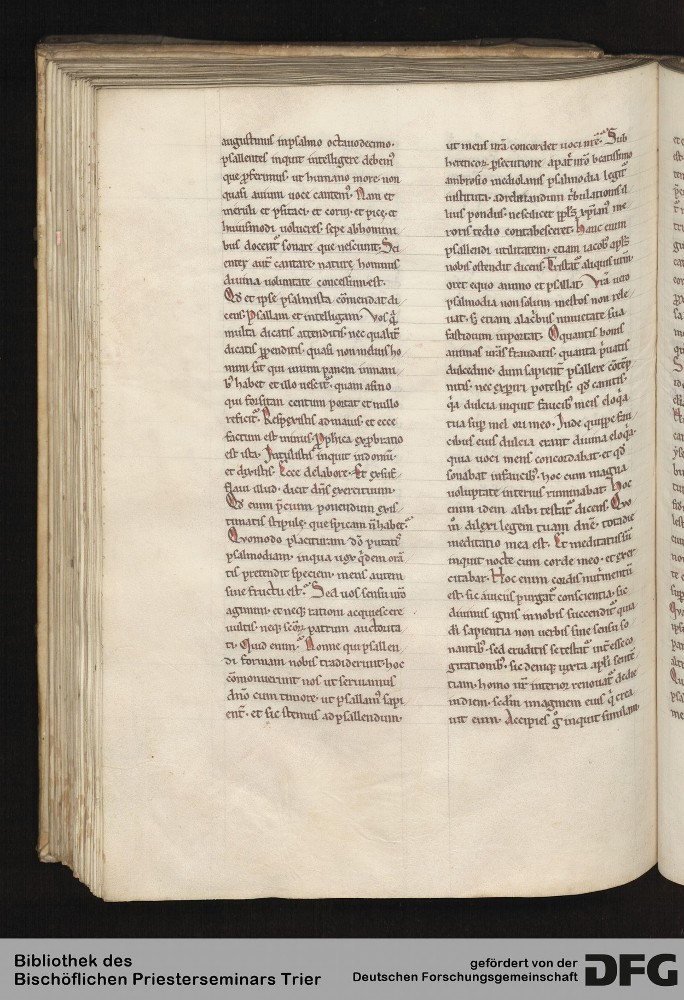 augustinus in psalmo octauodecimo.
psallentes inquit intelligere debem᷒
que p̄ferim᷒. ut humano more non
quasi auium uoce cantem᷒. Nam et
meruli et psitaci et corui. et pice. et
huiusmodi uolucres. sepe ab homini
bus docent᷑ sonare que nesciunt. Sci
enter aut̄ cantare. nature hominis
diuina uoluntate concessum est.
Qd̄ et ipse psalmista cōmendat di
cens. Psallam et intelligam. Vos q̇
multa dicatis attenditis. nec qualit̄
dicatis ꝑpenditis. quasi non melius ho
mini sit qui unum panem in mani
b᷒ habet et illo uescit᷑. quam asino
qui forsitan centum portat et nullo
reficit᷑. Respexistis ad maius. et ecce
factum est minus. Ꝓphica exp̄bratio
est ista. Intulistis inquit in domū.
et dixistis. Ecce de labore. Et exsuf
flaui illud. dicit dn̄s exercituum.
Qd̄ enim p̄cium ponendum exis
timatis stipule. que spicam n̄ habet.
Quomodo placituram dō putatis
psalmodiam. in qua uox q̇dem orā
tis pretendit speciem. mens autem
sine fructu est. Sed uos sensu uro
agimini. et neq; rationi acquiescere
uultis. neq; scōꝝ patrum auctorita
ti. Quid enim. Nonne qui psallen
di formam nobis tradiderunt. hoc
cōmonuerunt nos ut seruiamus
dn̄o cum timore. ut psallam᷒ sapi
ent᷑. et sic stemus ad psallendum.
ut mens nr̄a concordet uoci nr̄e. Sub
hereticoꝝ ꝑsecutione a patr̄ nr̄o beatissimo
ambrosio mediolanis psalmodia legit᷑
instituta. ad releuandum t̓bulationis il
lius pondus. ne seclicet ppl̄s xp̄ianus me
roris tedio contabesceret. Hanc enim
psallendi utilitatem. etiam iacob᷒ apl̄s
nobis ostendit dicens. Tristat᷑ aliquis urm̄.
oret equo animo et psallat. Vr̄a uero
psalmodia non solum mestos non rele
uat. s; etiam alacrib᷒ nimietate sua
fastidium importat. O quantis bonis
animas ur̄as fraudatis. quanta p̓uatis
dulcedine. dum sapient᷑ psallere cōtēp
nitis. nec experiri potestis. qd̄ canitis.
q̄ dulcia inquit faucib᷒ meis eloq̇a
tua sup̄ mel ori meo. Inde quippe fau
cibus eius dulcia erant diuina eloq̇a.
quia uoci mens concordabat. et qd̄
sonabat in faucib᷒. hoc cum magna
uoluptate interius ruminabat. Hoc
enim idem alibi testat᷑ dicens. Quo
m̄ dilexi legem tuam dn̄e. tota die
meditatio mea est. Et meditatus sū
inquit nocte cum corde meo. et exer
citabar. Hoc enim cordis nutrimentū
est. sic amicus purgat᷑ conscientia. sic
diuinus ignis in nobis succendit᷑. quia
di sapientia non uerbis sine sensu so
nantib᷒. sed eruditis se testat᷑ inesse co
gitationib᷒. sic deniq; iuxta apl̄i sentē
tiam. homo nr̄ interior renouat᷑ de die
in diem. sc̄dm imaginem eius q̇ crea
uit eum. Accipies g̊ inquit similam
Bibliothek des
Bischöflichen Priesterseminars Trier
gefördert von der
Deutschen Forschungsgemeinschaft
DFG